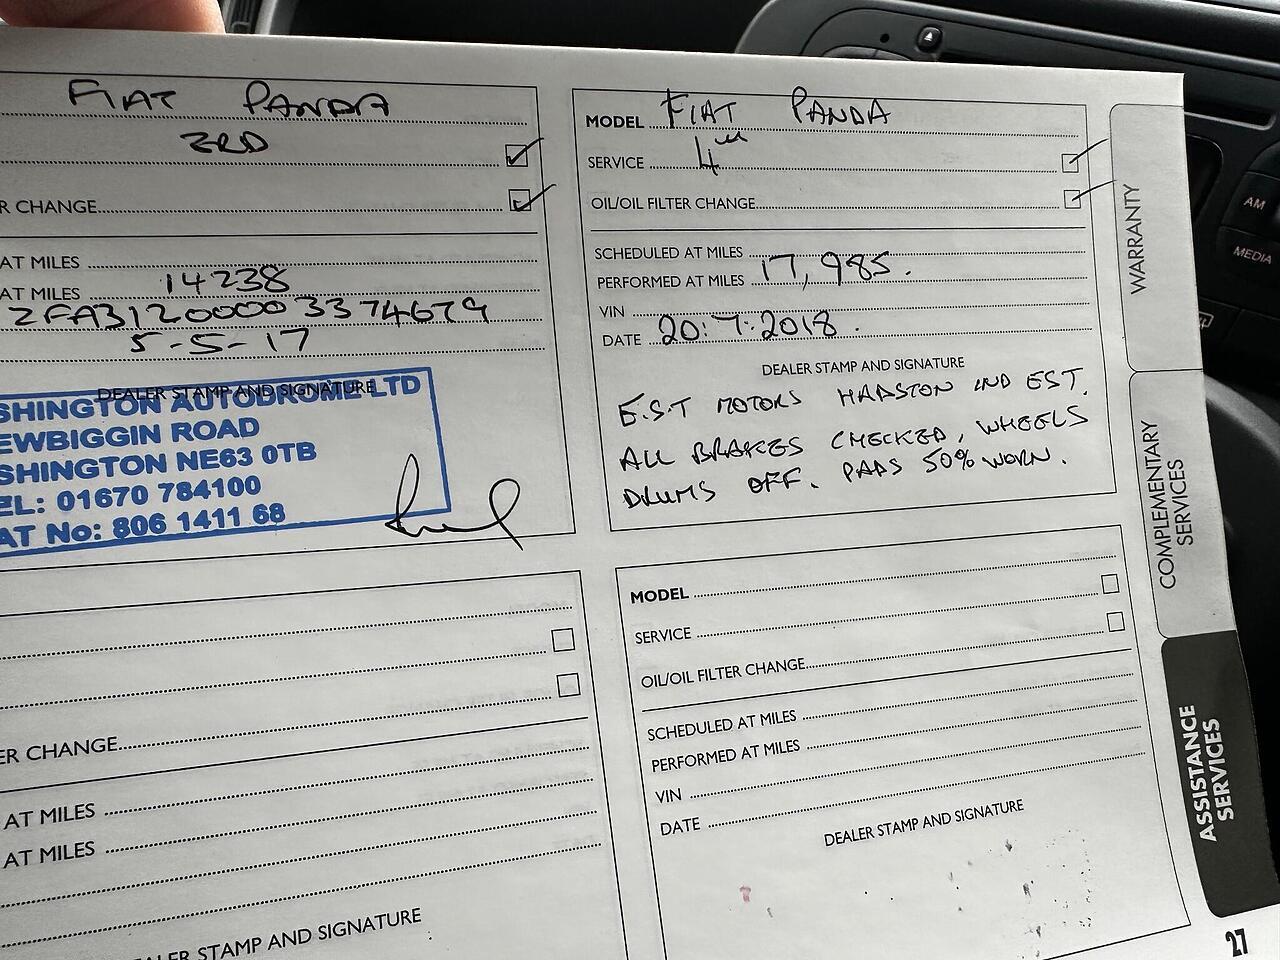 FIAT PANDA
3RD
R CHANGE
AT MILES
AT MILES 14238
ZFA3120000 3374679
5-5-17
DEALER STAMP AND SIGNATURE
SHINGTON AUTODROME LTD
EWBIGGIN ROAD
SHINGTON NE63 0TB
EL: 01670 784100
AT No: 806 1411 68
MODEL FIAT PANDA
SERVICE 4TH
OIL/OIL FILTER CHANGE
SCHEDULED AT MILES
PERFORMED AT MILES 17,985.
VIN
DATE 20:7:2018.
DEALER STAMP AND SIGNATURE
E.S.T MOTORS HADSTON IND EST.
ALL BRAKES CHECKED, WHEELS
DRUMS OFF. PADS 50% WORN.
ER CHANGE
AT MILES
AT MILES
ALER STAMP AND SIGNATURE
MODEL
SERVICE
OIL/OIL FILTER CHANGE
SCHEDULED AT MILES
PERFORMED AT MILES
VIN
DATE
DEALER STAMP AND SIGNATURE
WARRANTY
COMPLEMENTARY
SERVICES
ASSISTANCE
SERVICES
27
AM
MEDIA